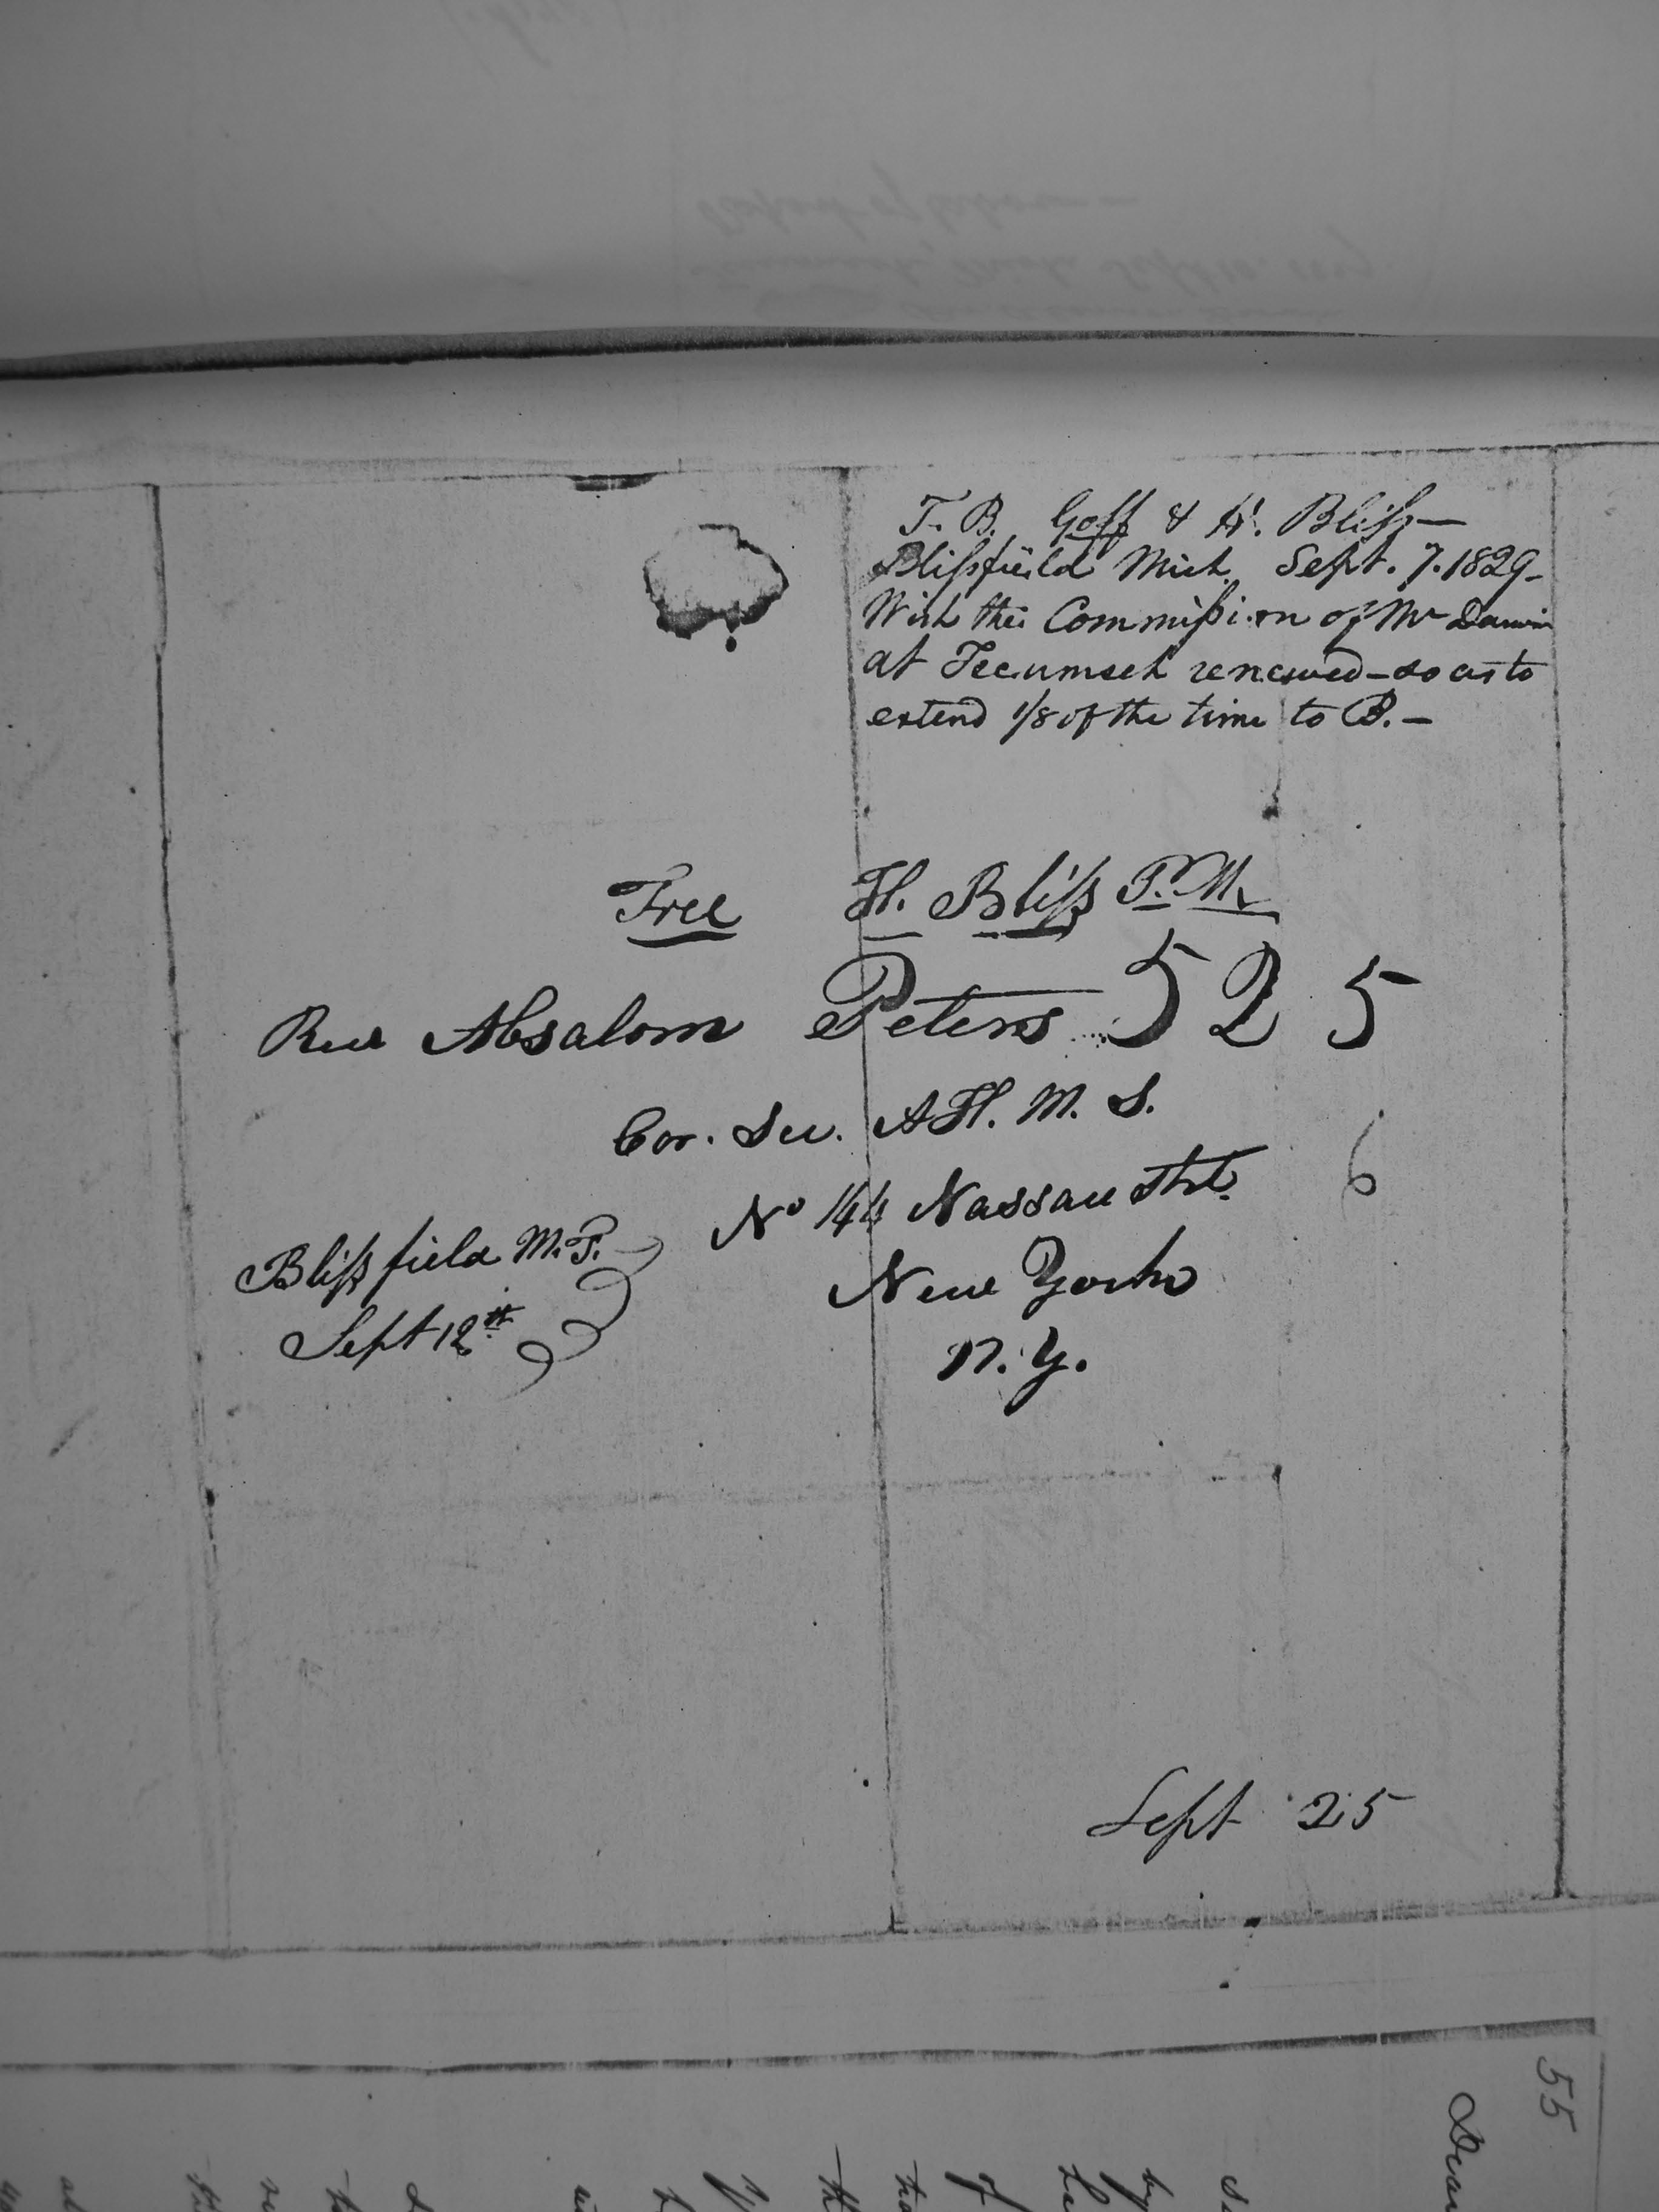 T. B. Goff & H. Bliss—
Blissfield Mich. Sept. 7. 1829-
Wish the Commission of Mr Darwin
at Tecumseh renewed—so as to
extend 1/8 of the time to B.—
Free H. Bliss P. M.
Rev Absalom Peters 525
Cor. Sec. A H. M. S.
6
No 144 Nassau Str.
Blissfield M. T.
Sept 12th
New York
N. Y.
Sept 25
55
Dear